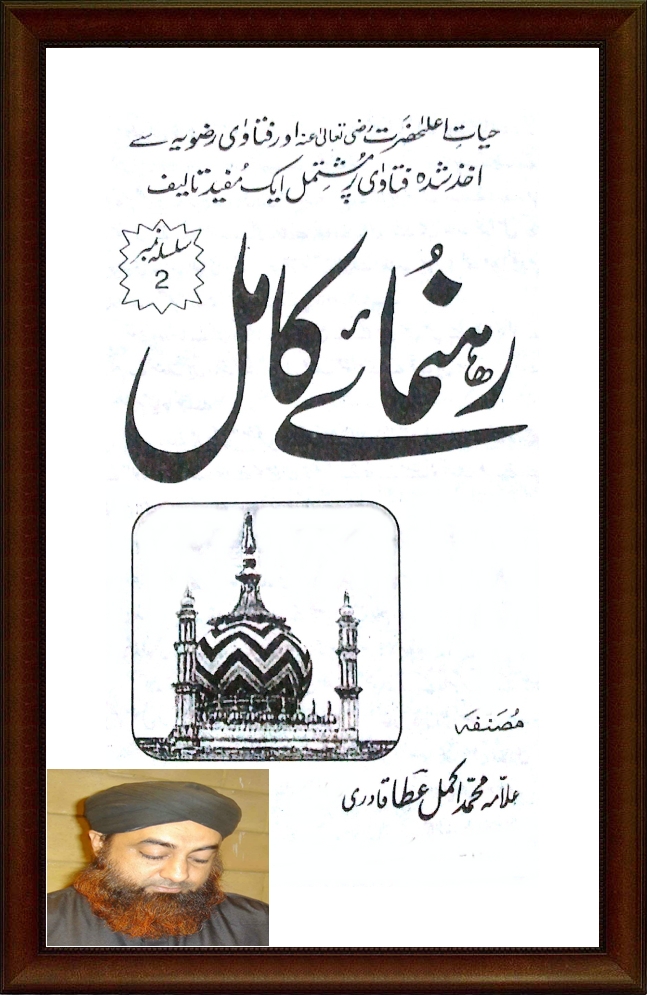 حیاتِ اعلیٰحضرت رضی تعالیٰ عنہ اور فتاوٰی رضویہ سے
اخذ شدہ فتاوٰی پر مُشتمل ایک مُفید تالیف
سلسلہ نمبر
2
رہنمائے کامل
مُصَنفہ
علامہ محمّد اکمل عَطا قادری